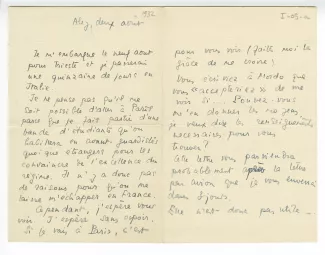 1952
I-03-
Alex, deux août
Je m'embarque le neuf août
pour Trieste et je passerai
une quinzaine de jours en
Italie
Je ne pense pas qu'il me
soit possible d'aller à Paris
parce que je fais partie d'une
bande d'étudiants qu'on
habillera en avant guardistes
que que étrangers pour les
convaincre de l'excellence du
régime. Il n'y a donc pas
de raisons pour qu'on me
laisse m'échapper en France.
Cependant, j'espère vous
voir. J'espère sans espoir.
Si je vais à Paris, c'est
pour vous voir (faites moi la
grâce de me croire!
Vous écrivez à Mordo que
vous accepteriez de me
voir si .... Pouvez-vous
m'en donner la
je veux dire les renseignements
nécessaires pour vous
trouver?
Cette lettre vous parviendra
probablement après la lettre
par avion que je vous enverrai
dans 8 jours.
Elle n'est donc pas utile -